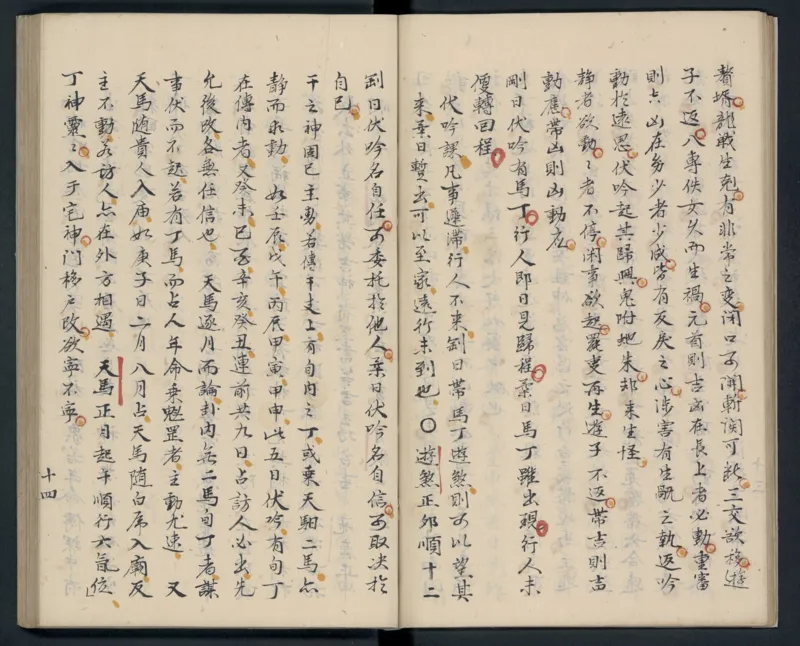 贅壻龍戰生剋有非常之变閉口可開斬関可断三交欲移遊
子不返八專佚女失而生禍元首則吉凶在長上者必動重審
則六凶在多少者少咸皆有反戾之心涉害有生甌之執返吟
動於遠思伏吟起其歸興鬼附地来却来生怪
静者欲動動者不停闲事欲起罷吏再生遊子不返帶吉則吉
動應帶凶則凶動應
剛日伏吟有馬丁行人即日見歸程柔日馬丁雖出現行人未
便轉回程
伏吟課凡事遲滯行人不来剛日帶馬丁遊煞則可以望其
来柔日暫去可以至家遠行未到也〇遊煞正卯順十二
剛日伏吟名自任可委托於他人柔日伏吟名自信可取决於
自己
干之神固已主動若傳干支上有旬内之丁或乘天馹二馬亦
静而求動如壬辰戊午丙辰甲寅甲申此五日伏吟有旬丁
在傳内者又癸未己丞辛亥癸丑連前共九日占訪人必出先
允後改各無任信也天馬逐月而論卦内無二馬旬丁者謀
事伏而不起若有丁馬而占人年命乗魁罡者主動尤速又
天馬随貴人入庙如庚子日二月八月占天馬随白虎入廟反
主不動若訪人亦在外方相遇天馬正月起午順行六氣位
丁神靈灵入于宅神門移户改欲寧不寧
十四